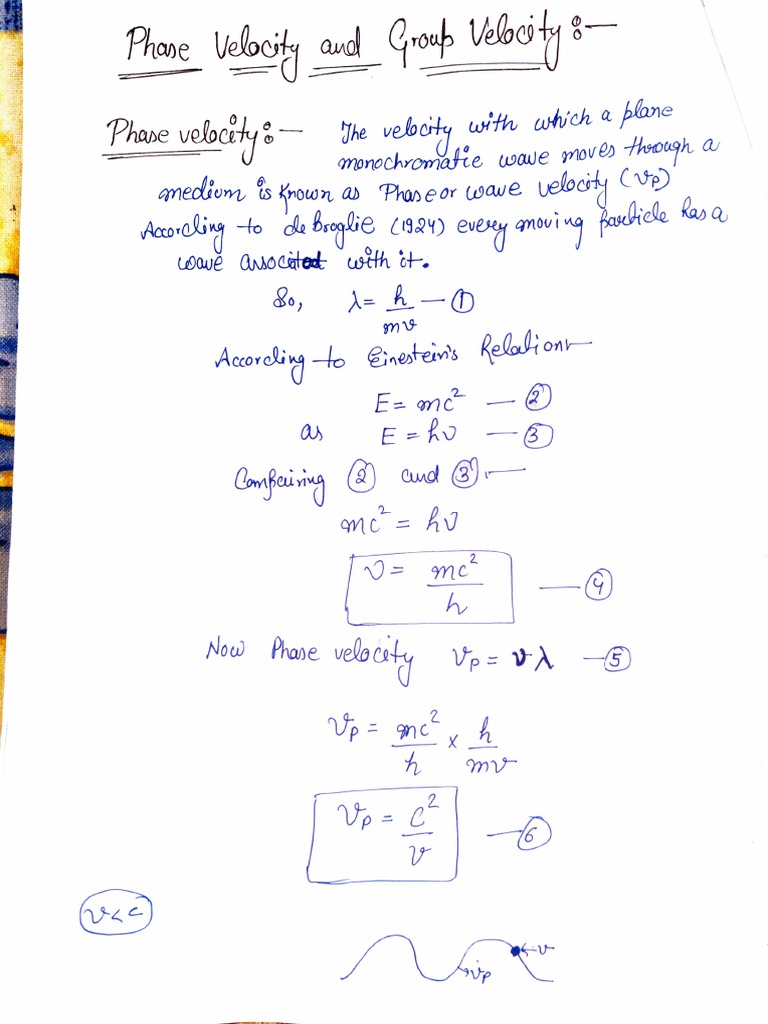 Phase Velocity and Group Velocity :-
Phase velocity :- The velocity with which a plane
monochromatic wave moves through a
medium is known as Phase or wave velocity (vp)
According to de Broglie (1924) every moving particle has a
wave associted with it.
So, λ = h/mv — ①
According to Einestein's Relation -
E = mc² — ②
as E = hν — ③
Compairing ② and ③ -
mc² = hν
ν = mc²/h — ④
Now Phase velocity vp = νλ — ⑤
vp = mc²/h × h/mv
vp = c²/v — ⑥
v < c
v
vp